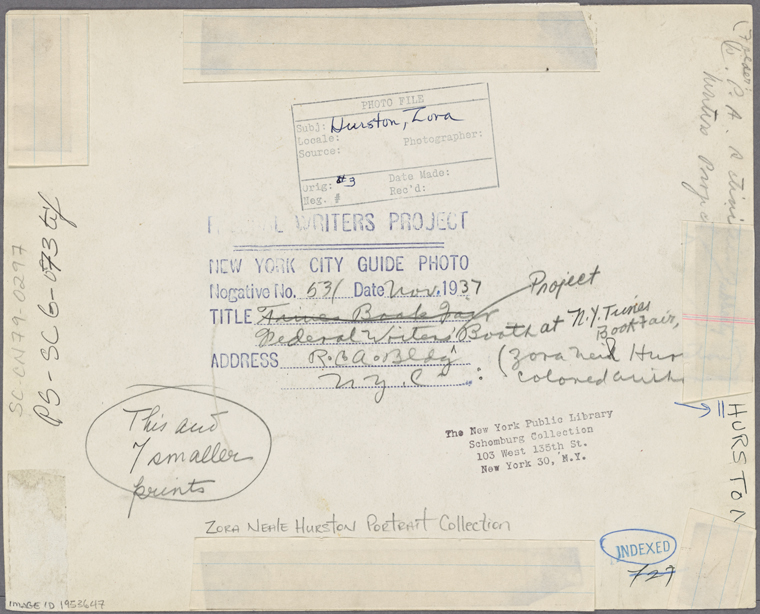 PHOTO FILE
Subj: Hurston, Zora
Locale:
Photographer:
Source:
Orig: #3
Date Made:
Neg. #
Rec'd:
WRITERS PROJECT
NEW YORK CITY GUIDE PHOTO
Negative No. 531 Date Nov. 1937
TITLE Times Book Fair
Federal Writers' Project Booth at N.Y. Times
Book Fair,
ADDRESS R.C.A. Bldg
N.Y.C.
(Zora Neil Hur
colored
This and
7 smaller
prints
The New York Public Library
Schomburg Collection
103 West 135th St.
New York 30, N.Y.
Zora Neale Hurston Portrait Collection
INDEXED
727
IMAGE ID 1953647
SC-CN79-0297
HURSTON
W. P. A.
Writers